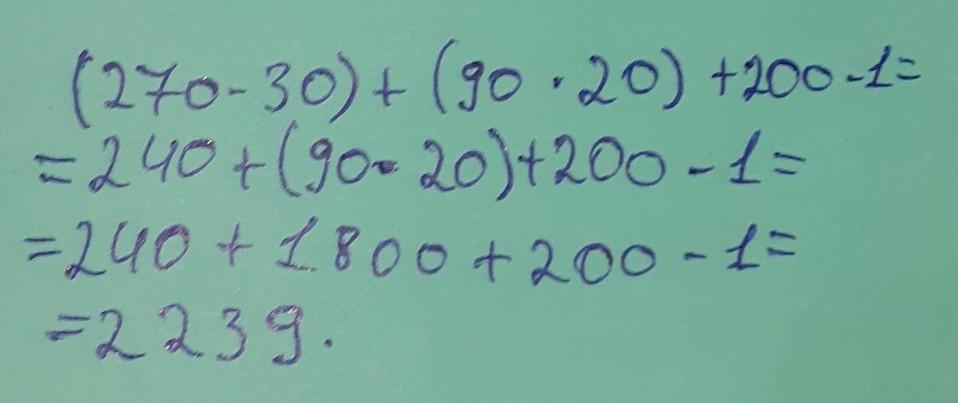 (270-30)+(90·20)+200-1=
=240+(90·20)+200-1=
=240+1800+200-1=
=2239.